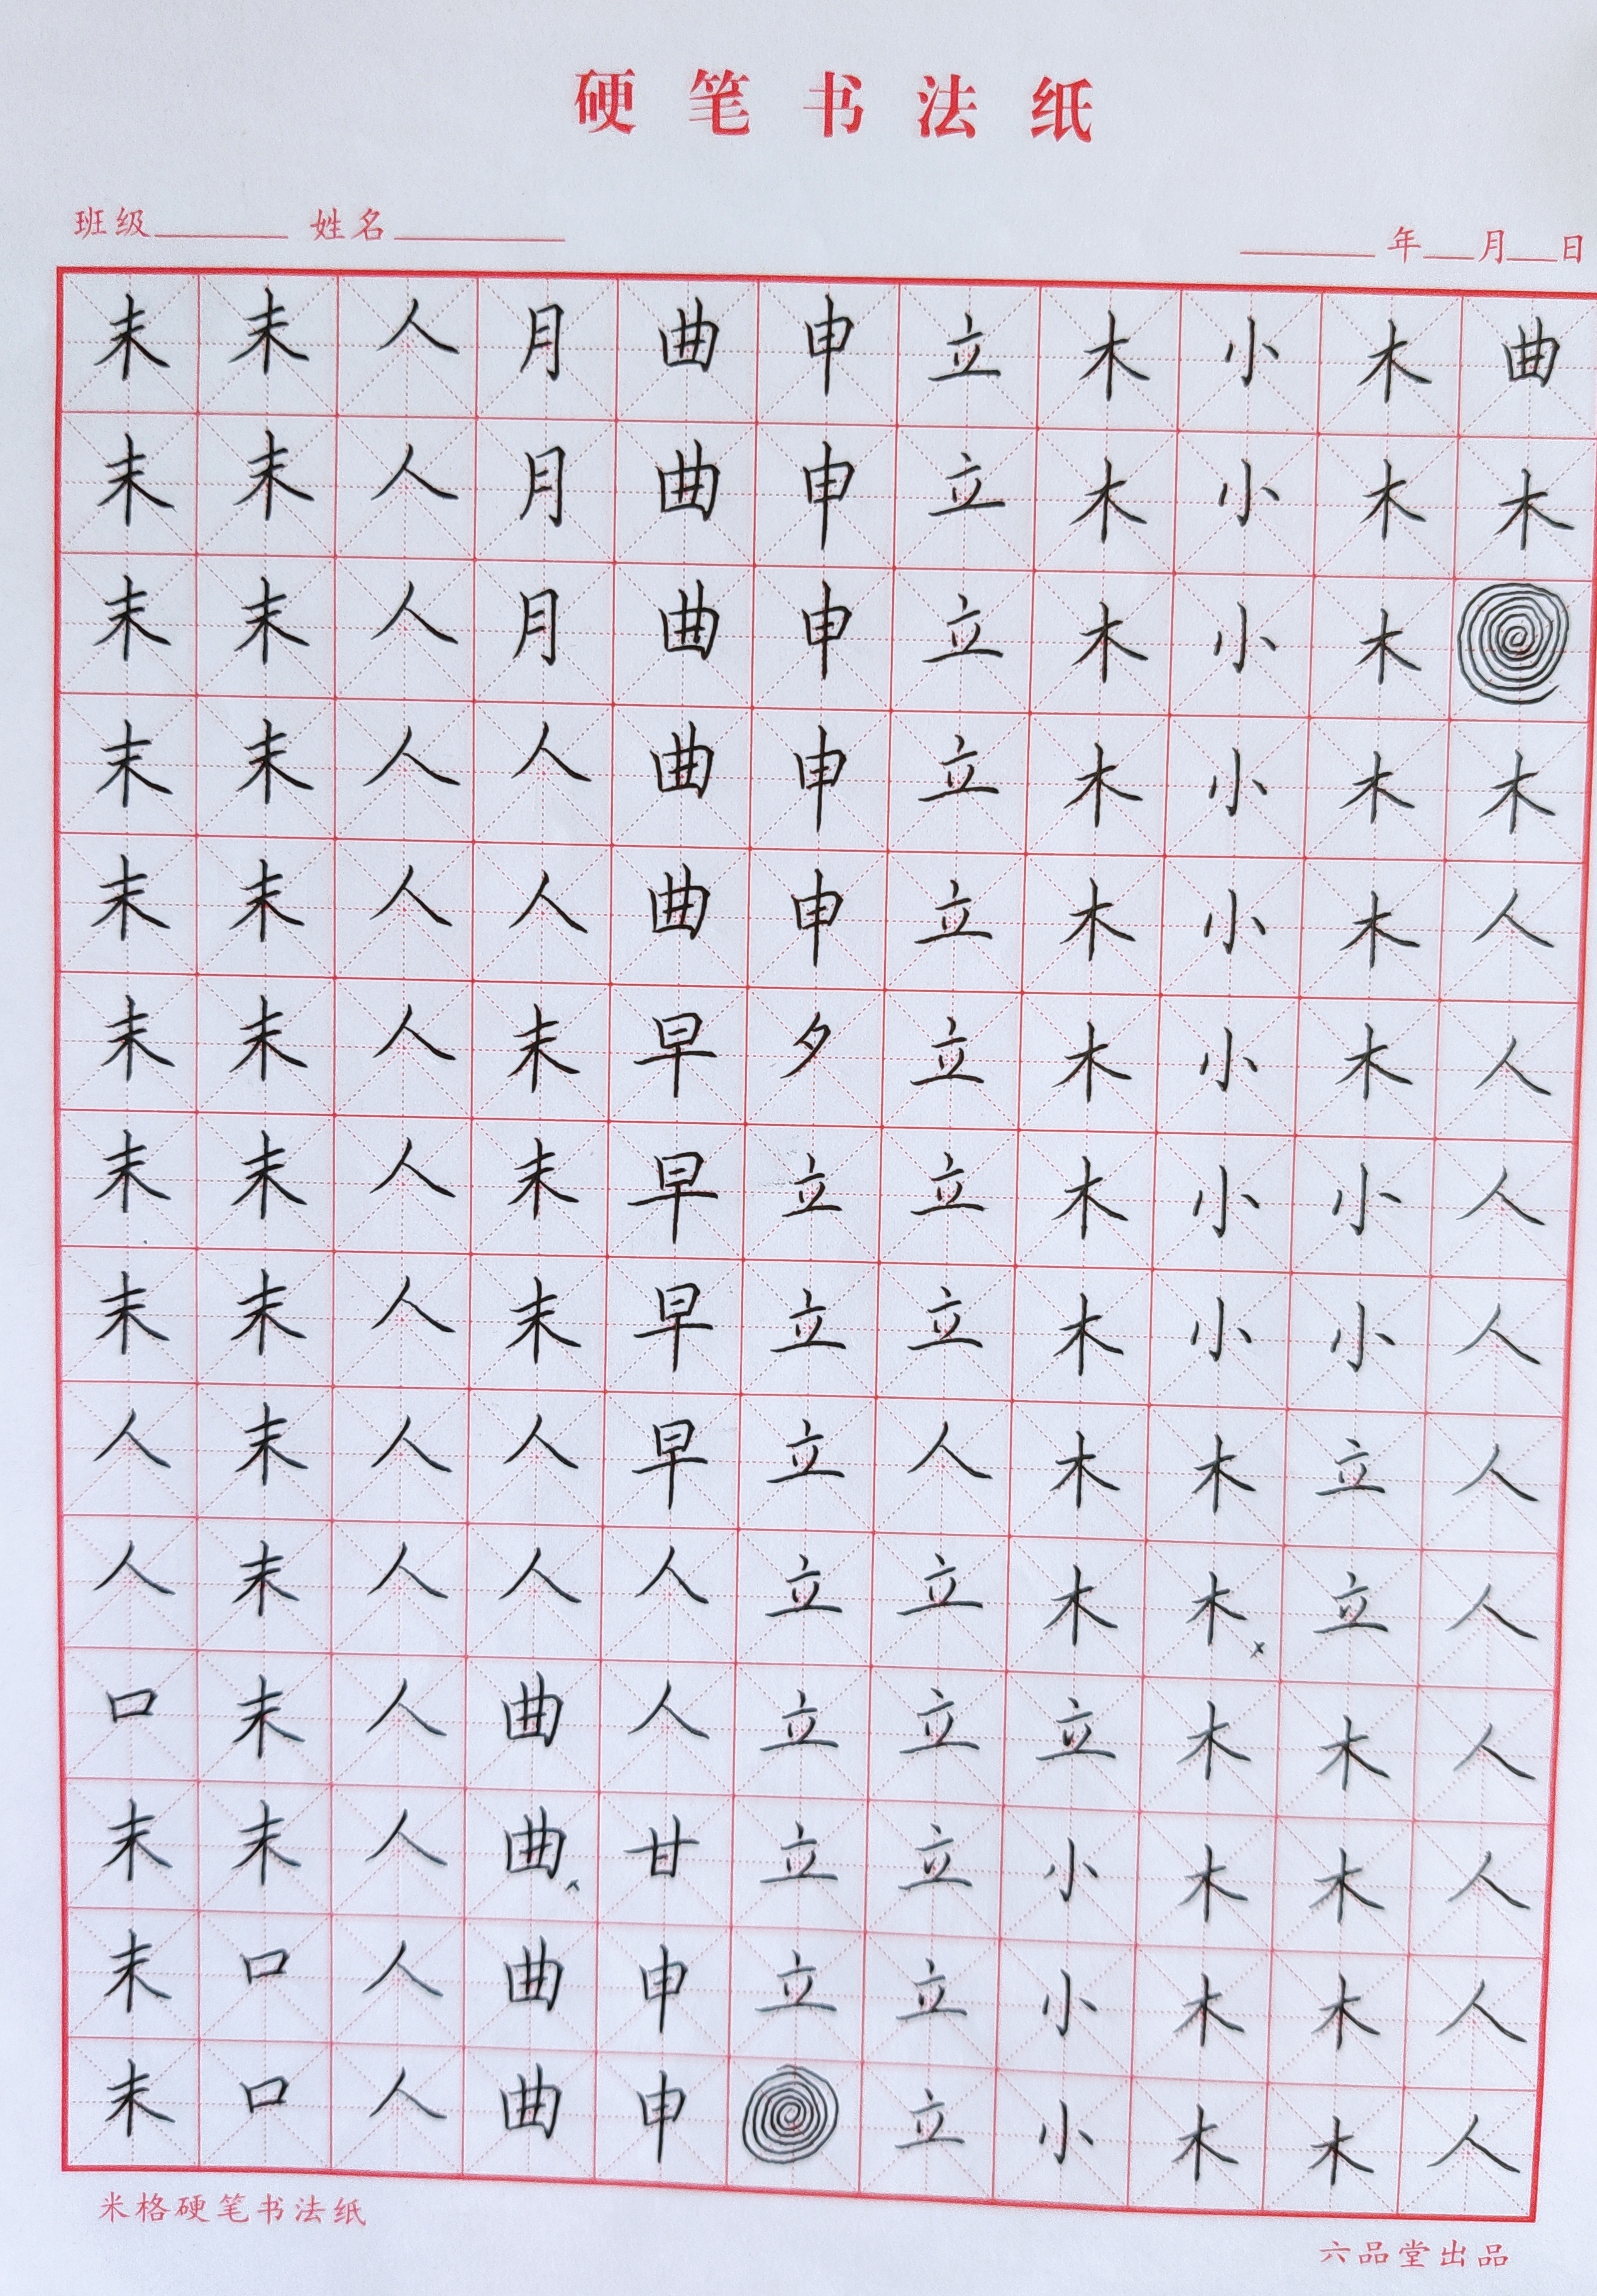 硬笔书法纸
班级 姓名 年 月 日
末 末 人 月 曲 申 立 木 小 木 曲
末 末 人 月 曲 申 立 木 小 木 木
末 末 人 月 曲 申 立 木 小 木
末 末 人 人 曲 申 立 木 小 木 木
末 末 人 人 曲 申 立 木 小 木 人
末 末 人 末 早 夕 立 木 小 木 人
末 末 人 末 早 立 立 木 小 小 人
末 末 人 末 早 立 立 木 小 小 人
人 末 人 人 早 立 人 木 木 立 人
人 末 人 人 人 立 立 木 木 立 人
口 末 人 曲 人 立 立 立 木 木 人
末 末 人 曲 甘 立 立 小 木 木 人
末 口 人 曲 申 立 立 小 木 木 人
末 口 人 曲 申 立 小 木 木 人
米格硬笔书法纸
六品堂出品